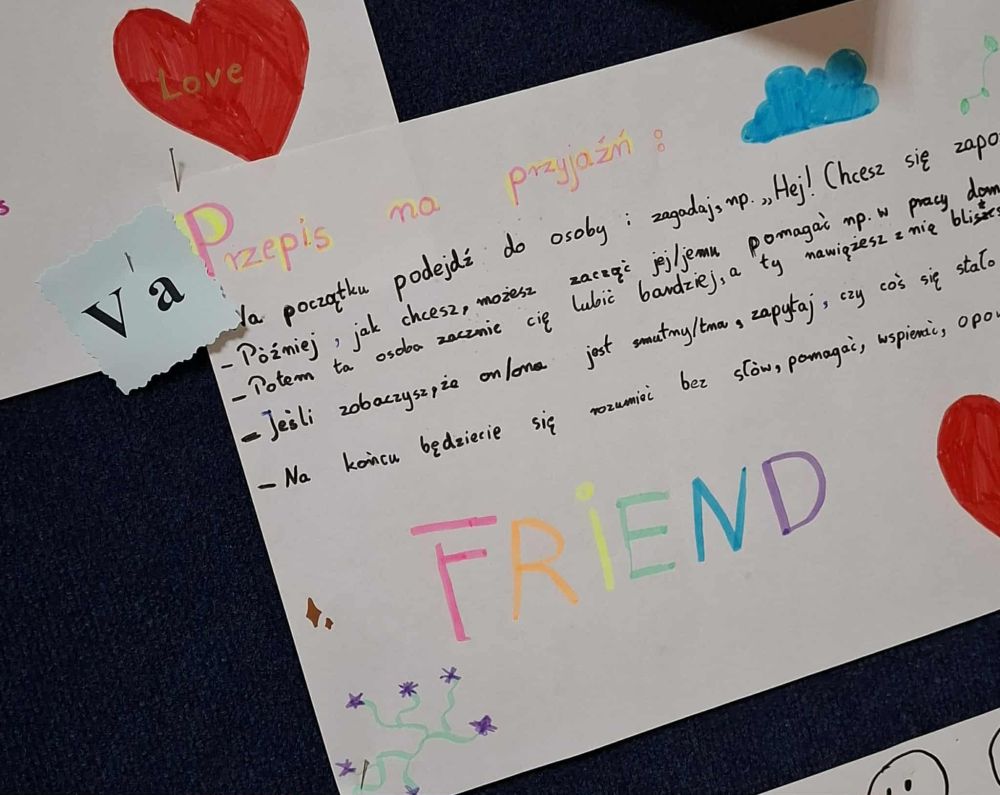 Love
s
Va
Przepis na przyjaźń:
Na początku podejdź do osoby i zagadaj, np. „Hej! Chcesz się
- Później, jak chcesz, możesz zacząć jej/jemu pomagać np. w pracy
- Potem ta osoba zacznie cię lubić bardziej, a ty nawiążesz z nią
- Jeśli zobaczysz, że on/ona jest smutny/tna, zapytaj, czy coś się stało
- Na końcu będziecie się rozumieć bez słów, pomagać, wspierać,
FRiEND